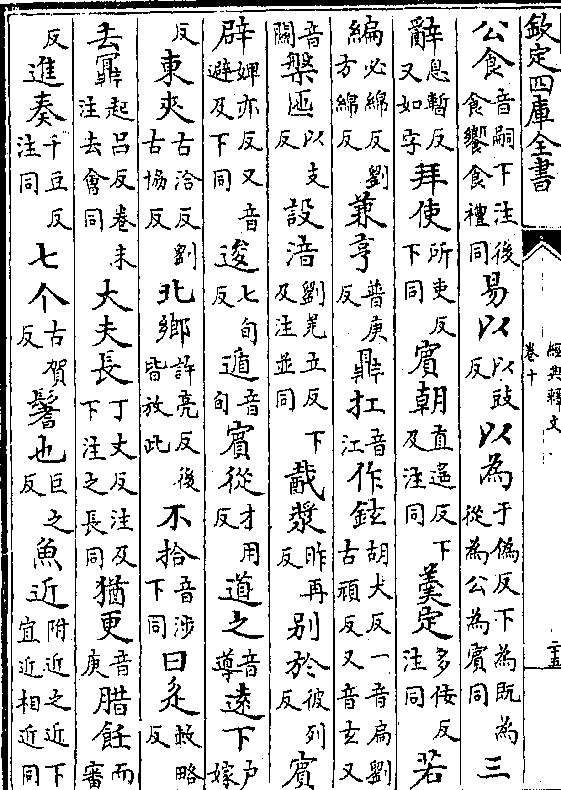 欽定四庫全書
經典釋文
卷十
二十五
公食音嗣下注後食饗食禮同易以以豉反以為于偽反下為既為從為公為賓同三
辭息暫反又如字拜使所吏反下同賓朝直遥反下及注同羹定多佞反注同若
編必綿反劉方綿反兼亨普庚反鼎扛音江作鉉胡犬反一音扁劉古頑反又音玄又
音關槃匜以支反設湆劉羌立反下及注並同胾漿昨再反别於彼列反賓
辟婢亦反又音避及下同逡七旬反遁音旬賓從才用反道之音導逺下户嫁
反東夾古洽反劉古協反北鄉許亮反後皆放此不拾音涉下同曰㲋敕略反
去鼏起吕反卷末注去會同大夫長丁丈反注及下注之長同猶更音庚腊飪而審
反進奏千豆反注同七个古賀反鬐也巨之反魚近附近之近下宜近相近同